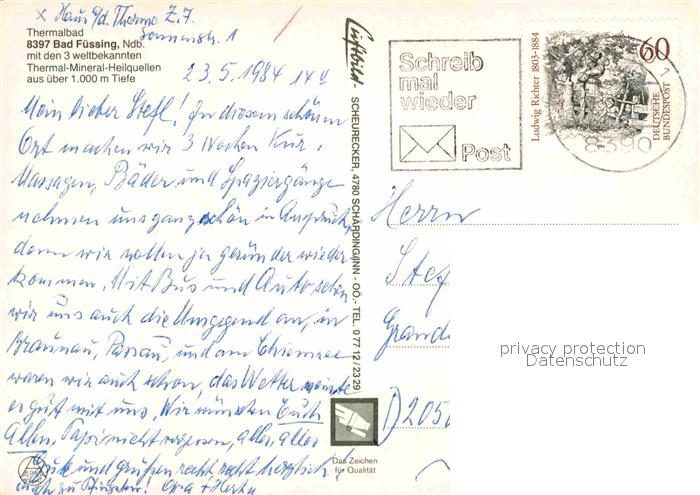 x Haus a/d. Therme Z.7.
Sonnenstr. 1
Thermalbad
8397 Bad Füssing, Ndb.
mit den 3 weltbekannten
Thermal-Mineral-Heilquellen
aus über 1.000 m Tiefe
23.5.1984 14 U
Mein lieber Stefl! In diesem schönen
Ort machen wir 3 Wochen Kur.
Massagen, Bäder und Spaziergänge
nehmen uns ganz schön in Anspruch,
denn wir wollen ja gesünder wieder
kommen. Mit Bus und Auto sehen
wir uns auch die Umgegend an, in
Braunau, Passau, und am Chiemsee
waren wir auch schon, das Wetter meinte
es gut mit uns. Wir wünschen Euch
Allen, Papi nicht vergessen, alles alles
Gute und grüßen recht recht herzlich!
auch zu Pfingsten! Opa + Herta
Luftbild - SCHEURECKER, 4780 SCHÄRDING/INN - OÖ.- TEL. 0 77 12/23 29
Das Zeichen
für Qualität
Schreib
mal
wieder
Post
Ludwig Richter 1803-1884
60
DEUTSCHE
BUNDESPOST
8390
Herrn
Stef
Grand
D 205
privacy protection
Datenschutz